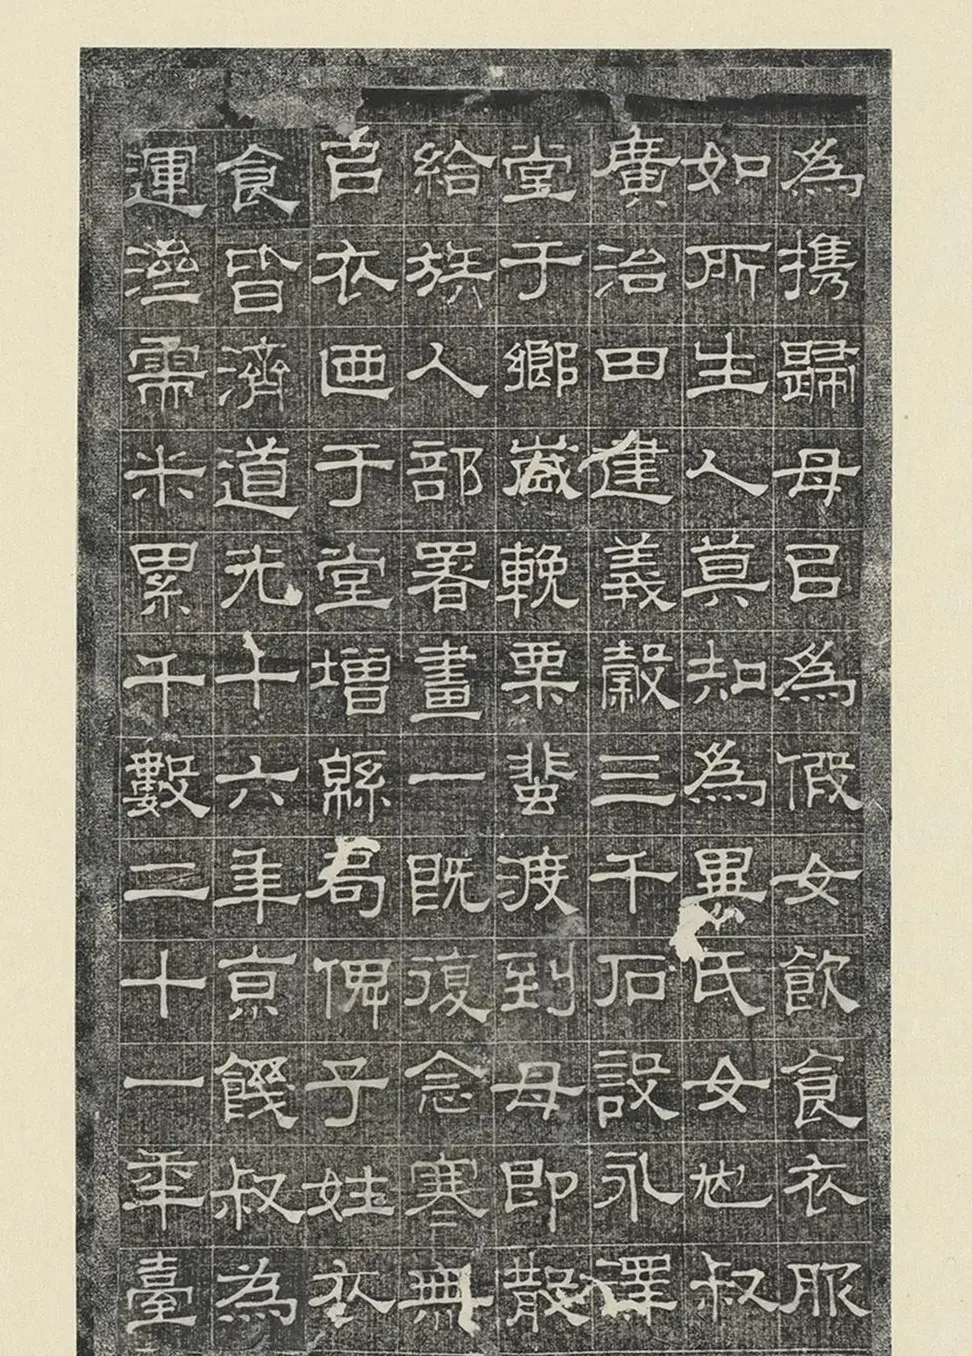 為攜歸母㠯為假女飲食衣服
如所生人莫知為畢氏女也叔
廣治田進義穀三千石設永澤
堂于鄉歲輓粟蜚渡到母即散
給族人部署畫一既復念寒無
㠯衣迺于堂增緜若俾子姓衣
食皆濟道光十六年京饑叔為
運濕需米累千數二十一年臺